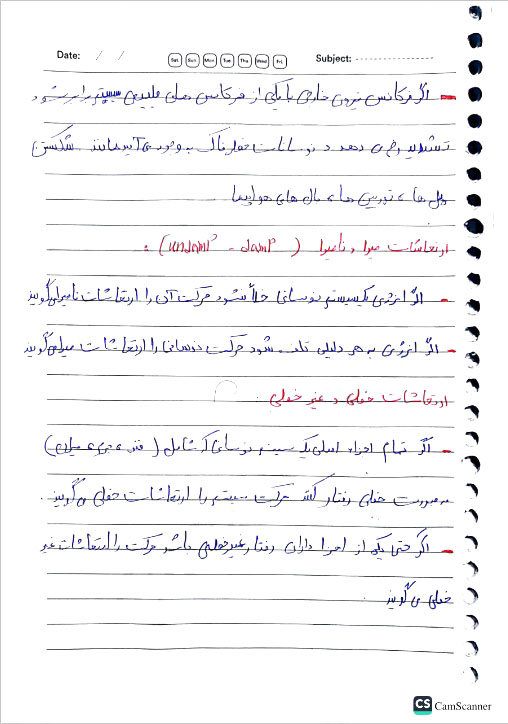 Date: / /
Sat. Sun. Mon. Tue. Thu. Wed. Fri.
Subject:
- اگر فرکانس نیروی خارجی با یکی از فرکانس های طبیعی سیستم برابر شود
تشدید رخ می دهد و نوسانات خطرناک به وجود می آید مانند شکستن
پل ها، توربین ها، بال های هواپیما
ارتعاشات میرا و نامیرا ( undamp - damp ) :
- اگر انرژی یک سیستم نوسانی تلف نشود حرکت آن را ارتعاشات نامیرا می گویند
- اگر انرژی به هر دلیلی تلف شود حرکت نوسانی را ارتعاشات میرا می گویند
ارتعاشات خطی و غیر خطی :
- اگر تمام اجزاء اصلی یک سیستم نوسانی که شامل ( فنر، جرم، میرایی )
به صورت خطی رفتار کنند حرکت سیستم را ارتعاشات خطی می گویند .
- اگر حتی یکی از اجزا دارای رفتار غیر خطی باشد حرکت را ارتعاشات غیر
خطی می گویند
CS CamScanner